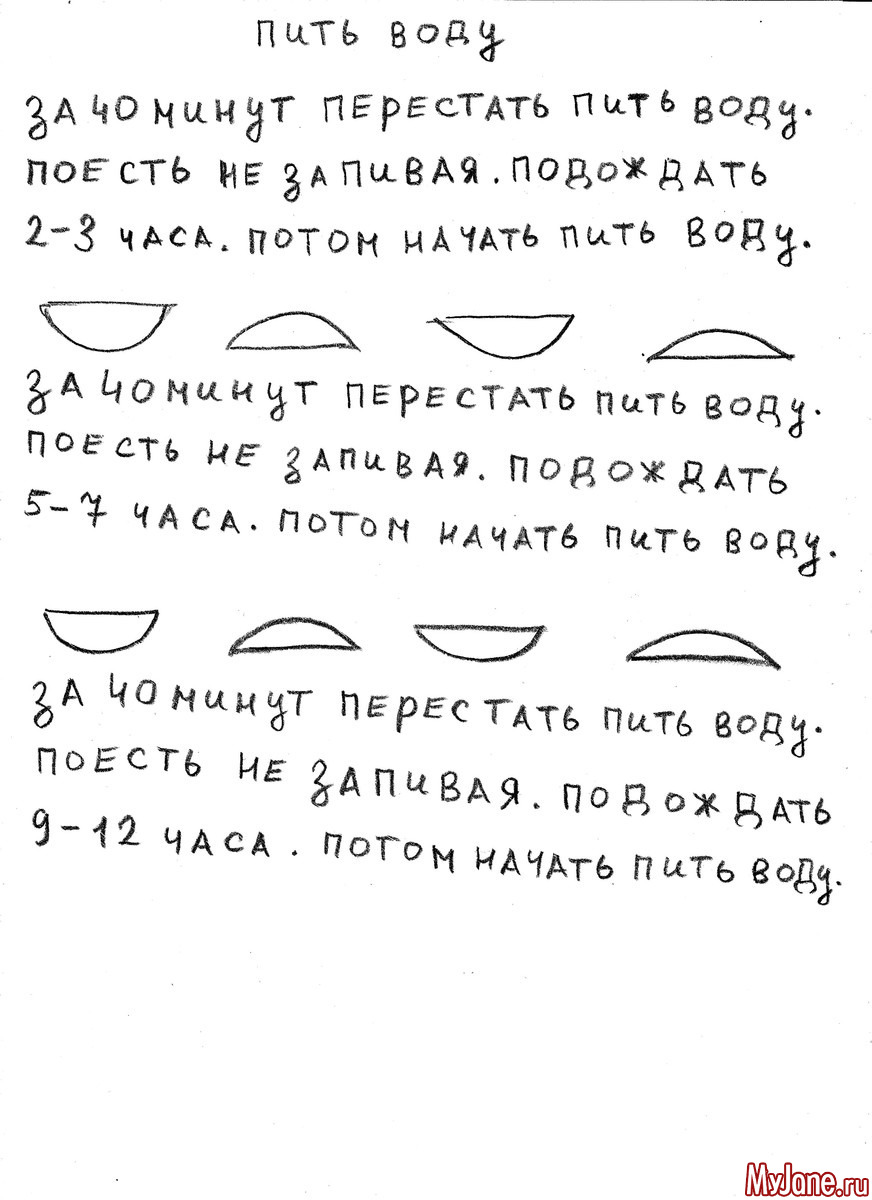 ПИТЬ ВОДУ
ЗА 40 МИНУТ ПЕРЕСТАТЬ ПИТЬ ВОДУ.
ПОЕСТЬ НЕ ЗАПИВАЯ. ПОДОЖДАТЬ
2-3 ЧАСА. ПОТОМ НАЧАТЬ ПИТЬ ВОДУ.
ЗА 40 МИНУТ ПЕРЕСТАТЬ ПИТЬ ВОДУ.
ПОЕСТЬ НЕ ЗАПИВАЯ. ПОДОЖДАТЬ
5-7 ЧАСА. ПОТОМ НАЧАТЬ ПИТЬ ВОДУ.
ЗА 40 МИНУТ ПЕРЕСТАТЬ ПИТЬ ВОДУ.
ПОЕСТЬ НЕ ЗАПИВАЯ. ПОДОЖДАТЬ
9-12 ЧАСА. ПОТОМ НАЧАТЬ ПИТЬ ВОДУ.
MyJane.ru